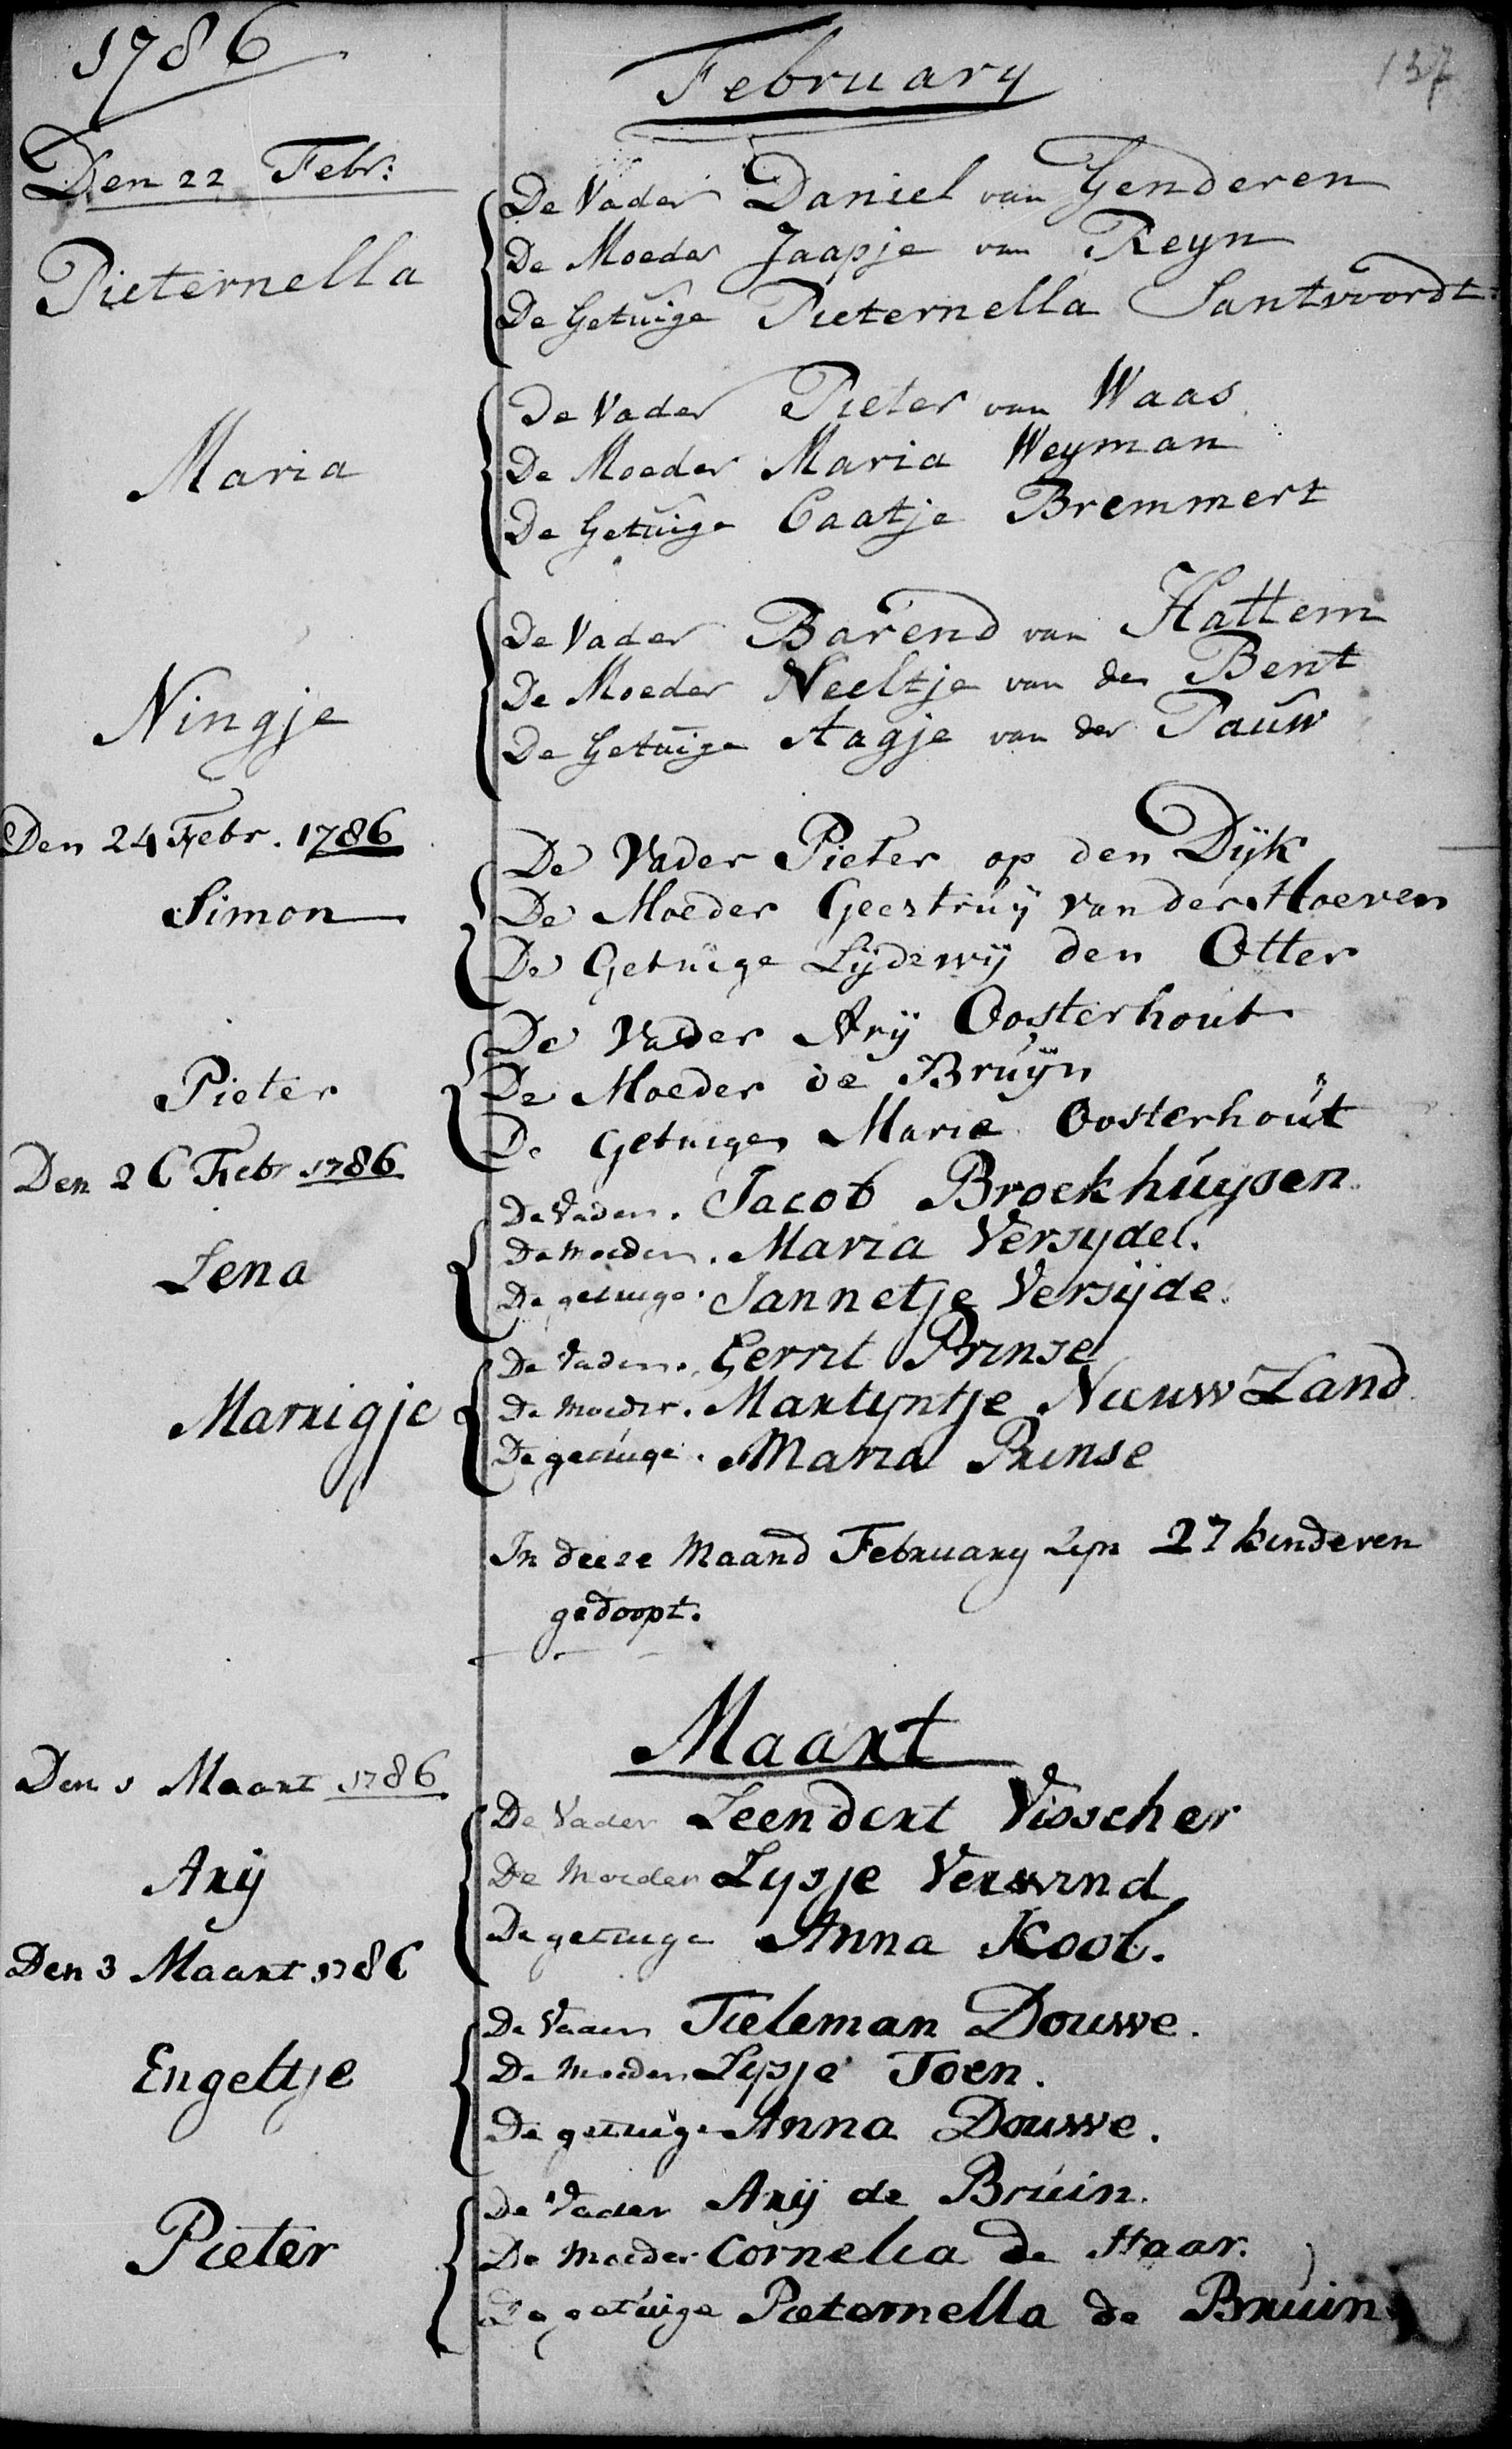 1786
February
137
Den 22 Febr:
Pieternella
De Vader Daniel van Genderen
De Moeder Jaapje van Reyn
De Getuige Pieternella Santvoordt
Maria
De Vader Pieter van Waas
De Moeder Maria Weyman
De Getuige Caatje Bremmert
Ningje
De Vader Barend van Hattem
De Moeder Neeltje van der Bent
De Getuige Aagje van der Pauw
Den 24 Febr. 1786
Simon
De Vader Pieter op den Dijk
De Moeder Geertruij van der Hoeven
De Getuige Lijdewij den Otter
Pieter
De Vader Arij Oosterhout
De Moeder de Bruijn
De Getuige Marie Oosterhout
Den 26 Febr 1786
Lena
De Vader. Jacob Broekhuysen
De moeder. Maria Versydel.
De getuige. Jannetje Versijde.
Marrigje
De Vader. Gerrit Prinse
De moeder. Martyntje Nieuw Land
De getuige. Maria Prinse
In deeze Maand February Zyn 27 kinderen
gedoopt.
Maart
Den 1 Maart 1786
Arij
De Vader Leendert Visscher
De Moeder Lysje Verwind
De getuige Anna Kool.
Den 3 Maart 1786
Engeltje
De Vader Tieleman Douwe.
De moeder Lysje Toen.
De getuige Anna Douwe.
Pieter
De Vader Arij de Bruin.
De moeder Cornelia de Haar.
De getuige Pieternella de Bruin